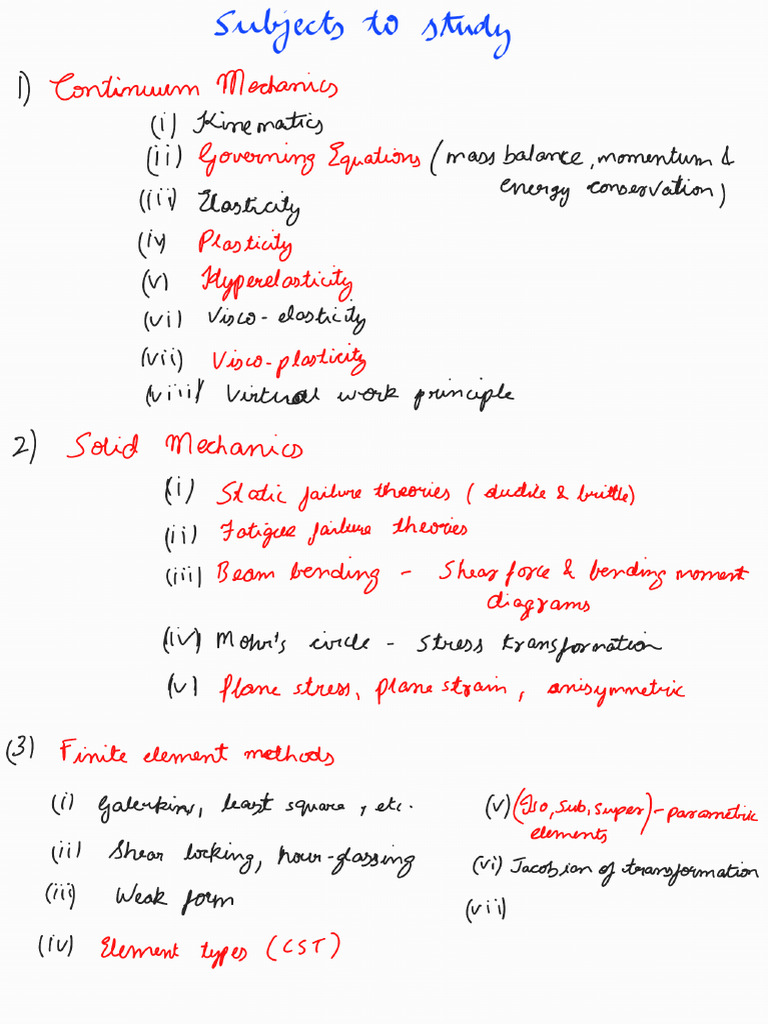 Subjects to study
1) Continuum Mechanics
(i) Kinematics
(ii) Governing Equations (mass balance, momentum &
energy conservation)
(iii) Elasticity
(iv) Plasticity
(v) Hyperelasticity
(vi) Visco-elasticity
(vii) Visco-plasticity
(viii) Virtual work principle
2) Solid Mechanics
(i) Static failure theories (ductile & brittle)
(ii) Fatigue failure theories
(iii) Beam bending - Shear force & bending moment
diagrams
(iv) Mohr's circle - Stress transformation
(v) Plane stress, plane strain, axisymmetric
(3) Finite element methods
(i) Galerkins, least square, etc.
(ii) Shear locking, hour-glassing
(iii) Weak form
(iv) Element types (CST)
(v) (Iso, Sub, super)-parametric
elements
(vi) Jacobian of transformation
(vii)